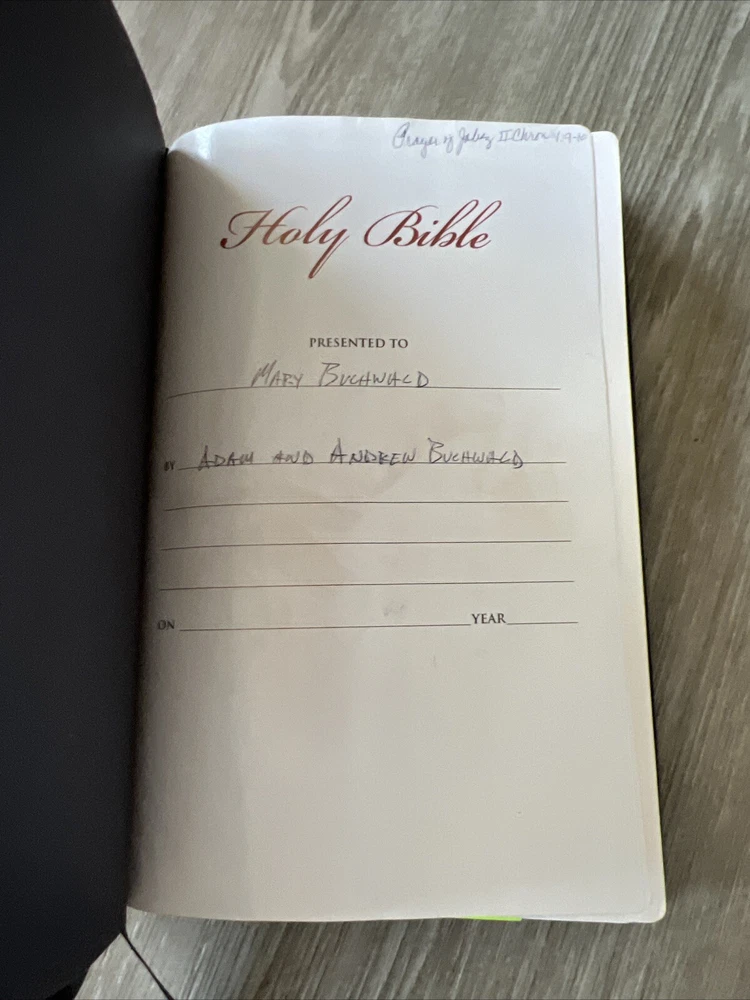 Prayer of Jabez II Chron 4:9-10
Holy Bible
PRESENTED TO
MARY BUCHWALD
BY ADAM AND ANDREW BUCHWALD
ON YEAR